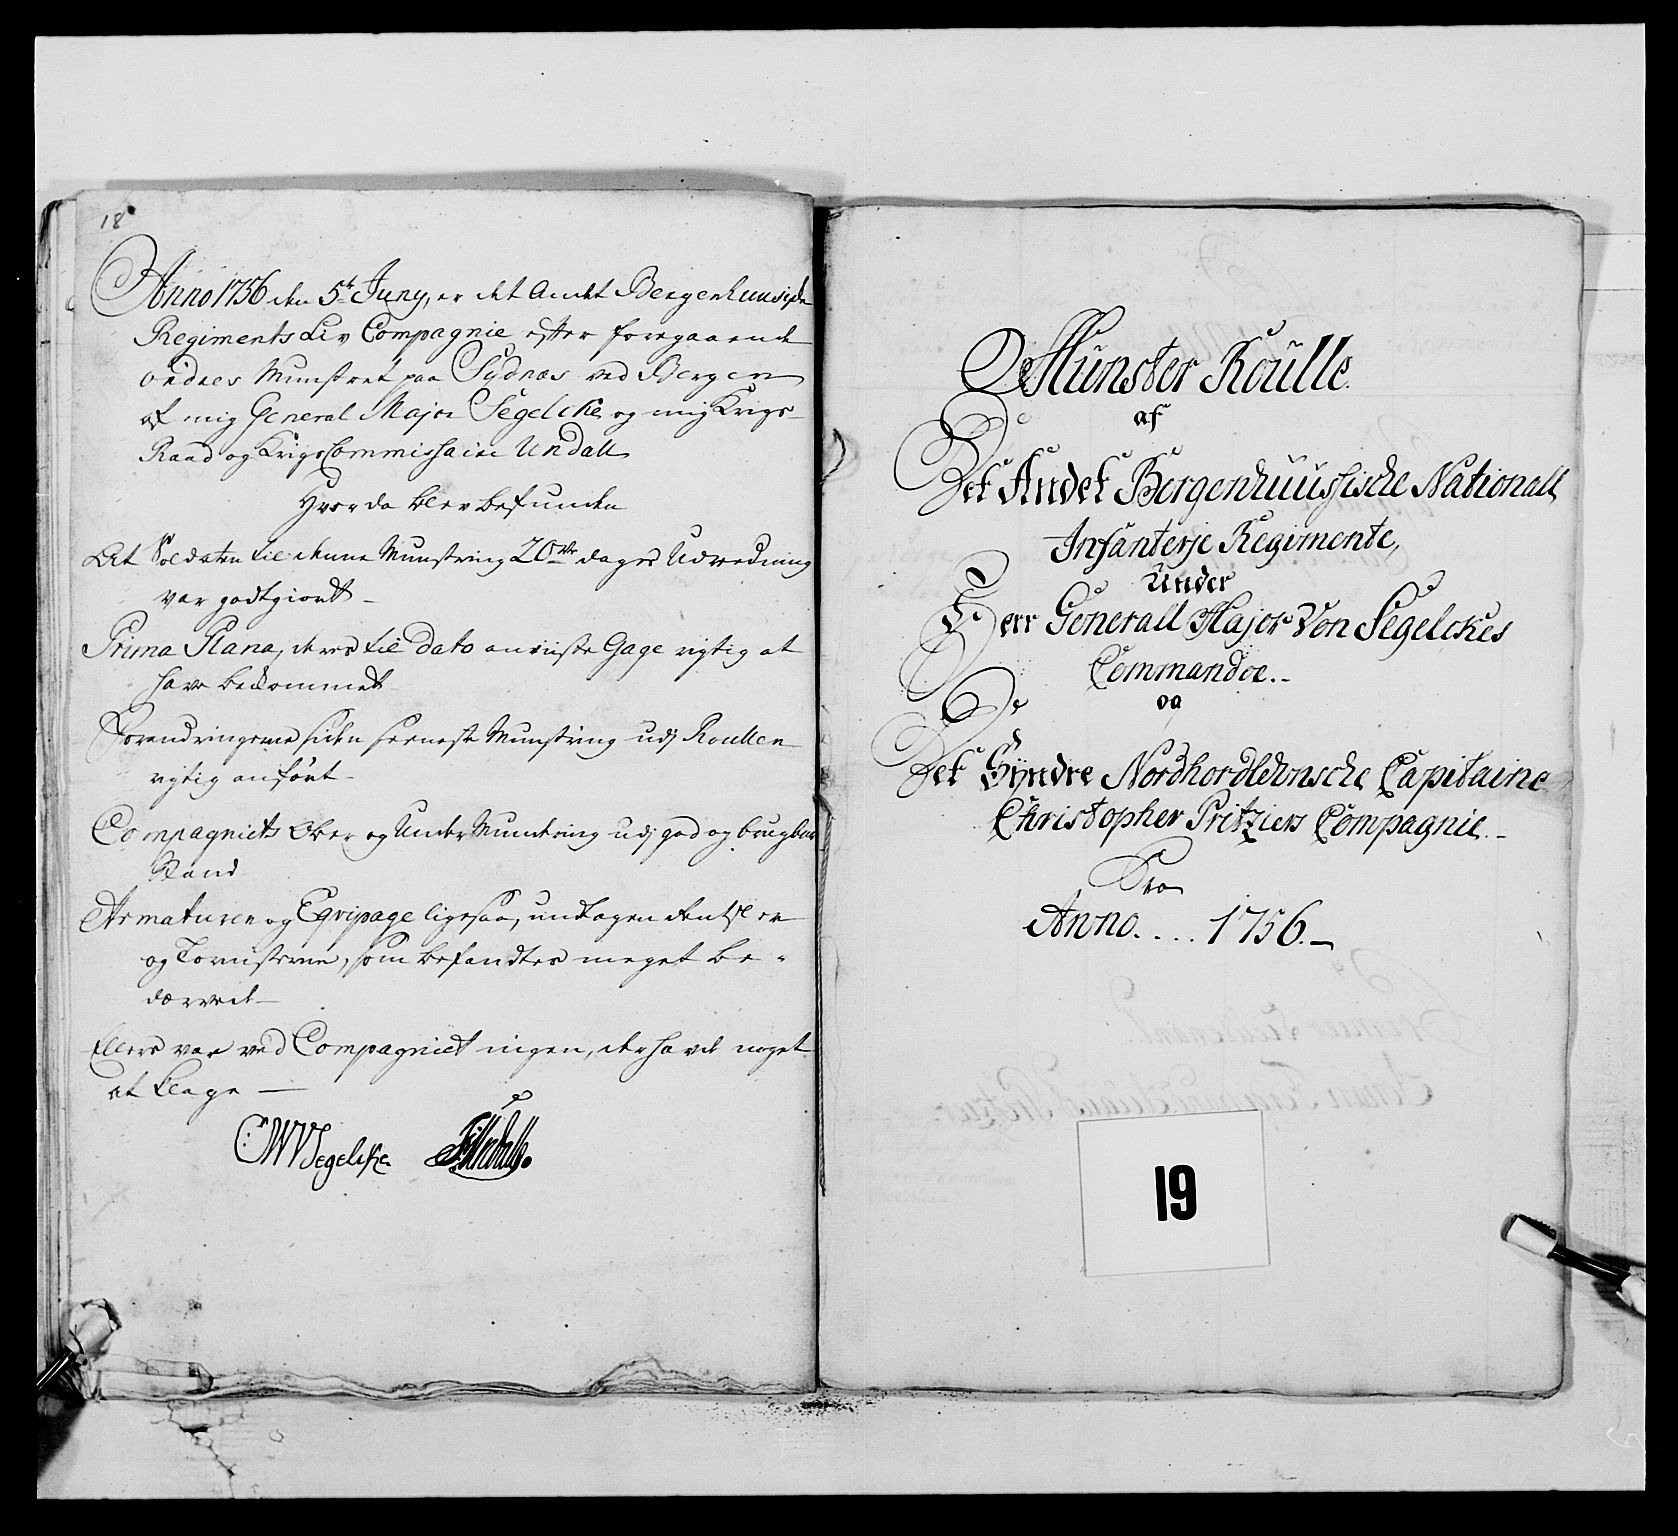 18
Anno 1756 den 5t Juny, er det Andet Bergenhuusiske
Regiments Liv Compagnie efter foregaaende
ordres Munstret paa Sydnæs ved Bergen
af mig General Major Segelcke og mig Krigs-
Raad og KrigsCommissaire Undall
Hvor da blev befunden
At Soldaten til denne Munstring 20ve dages Udreedning
var godtgiordt
Prima Plana, deres til Dato anviiste Gage rigtig at
have bekommet
Forandringerne siden seeneste Munstring udj Roullen
rigtig anført
Compagniets Over og Under Mundering udj god og brugbar
Stand
Armaturen og Eqvipage ligesaa, undtagen
og Tornisterne, som befandtes meget be-
dærvet
Ellers var ved Compagniet ingen, der havde noget
at klage
CWVSegelcke Undall.
Munster Roulle.
af
Det Andet Bergenhuusische Nationall
Infanterje Regimente,
Under
Herr Generall Major Von Segelckes
Commandoe.
og
Det Syndre Nordhordlehnsche Capitaine
Christopher Pritziers Compagnie.
Pro
Anno.... 1756.
19